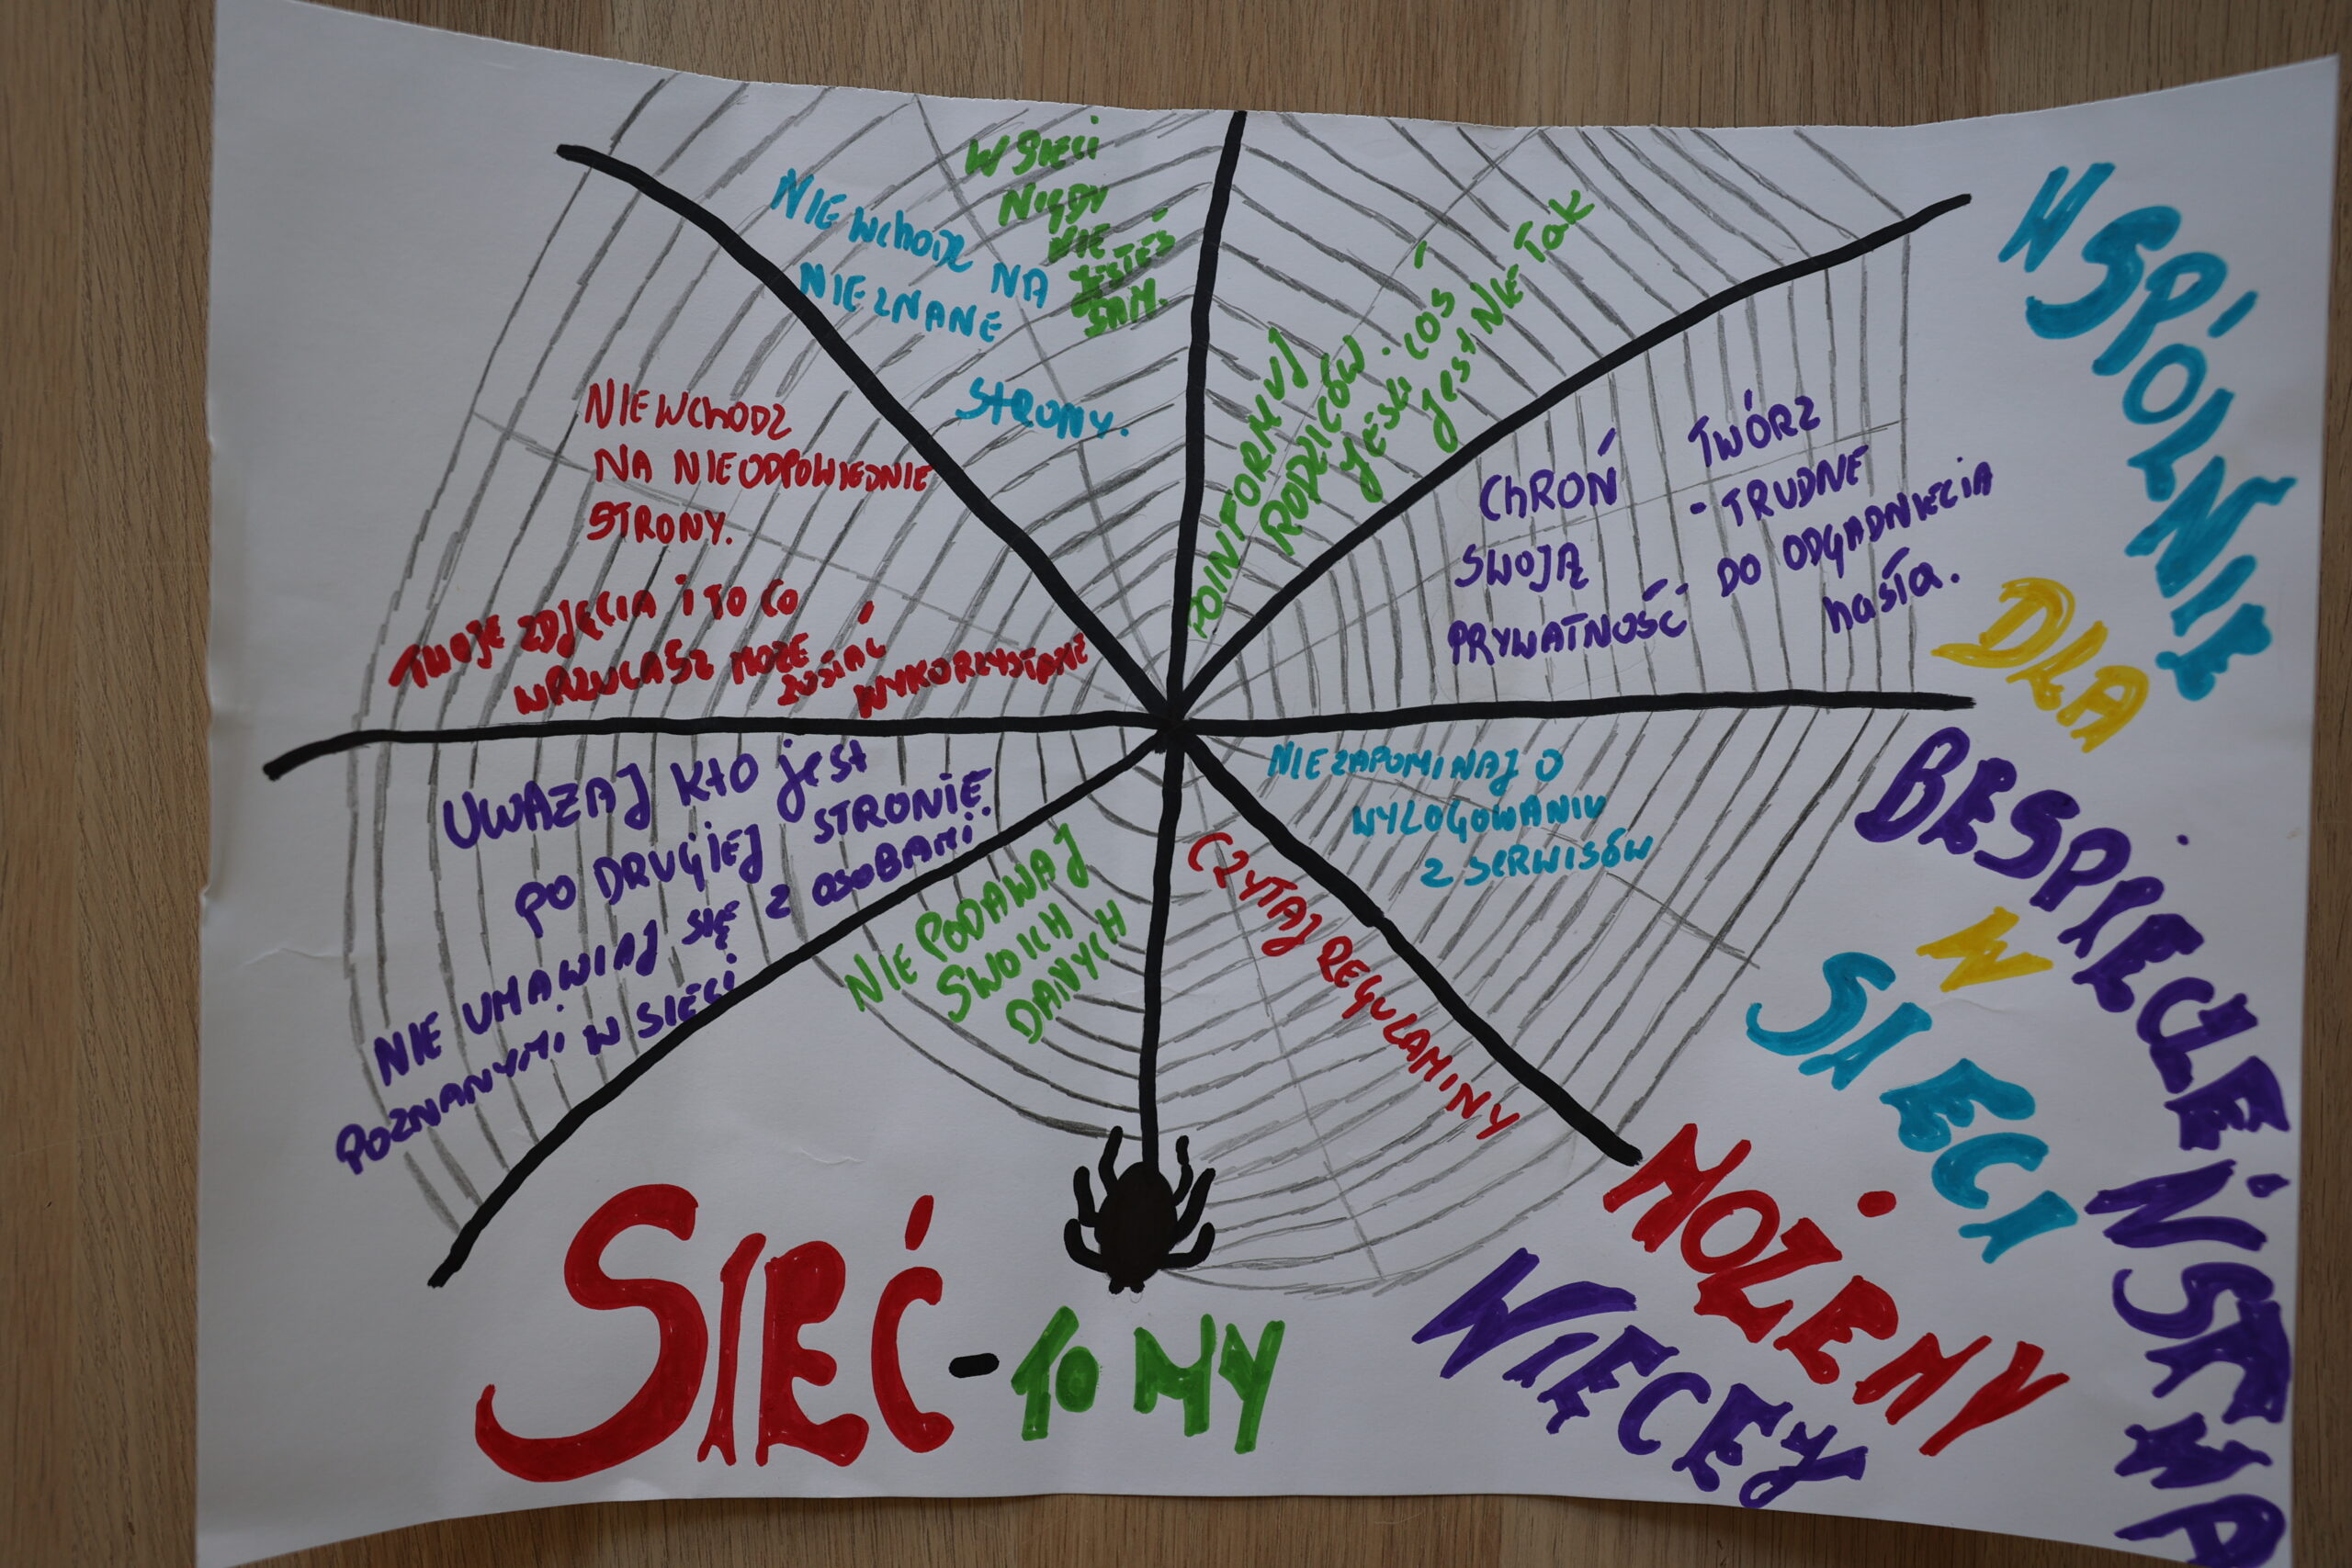 W SIECI
NIGDY
NIE
JESTEŚ
SAM.
NIE WchODZ NA
NIEZNANE
STRONY.
POINFORMUJ
RODZICÓW. JEŚLI COŚ
jest NIE TAK
NIE WChODZ
NA NIEODPOWIEDNIE
STRONY.
TWOJE ZDJĘCIA i TO CO
WRZUCASZ MOŻE
ZOSTAĆ
WYKORZYSTANE
ChROŃ
SWOJĄ
PRYWATNOŚĆ
TWÓRZ
- TRUDNE
DO ODGADNIĘCIA
hasła.
UWAZAJ KTO jest
PO DRUGIEJ STRONIE.
NIE UMAWIAJ SIĘ Z OSOBAMI
POZNANYMI W SIECI
NIE PODAWAJ
SWOICH
DANYCH
CZYTAJ REGULAMINY
NIE ZAPOMINAJ O
WYLOGOWANIU
Z SERWISÓW
SIEĆ - TO MY
WSPÓLNIE
DLA
BESPIECZEŃSTWA
W
SIECI
MOŻEMY
WIĘCEJ